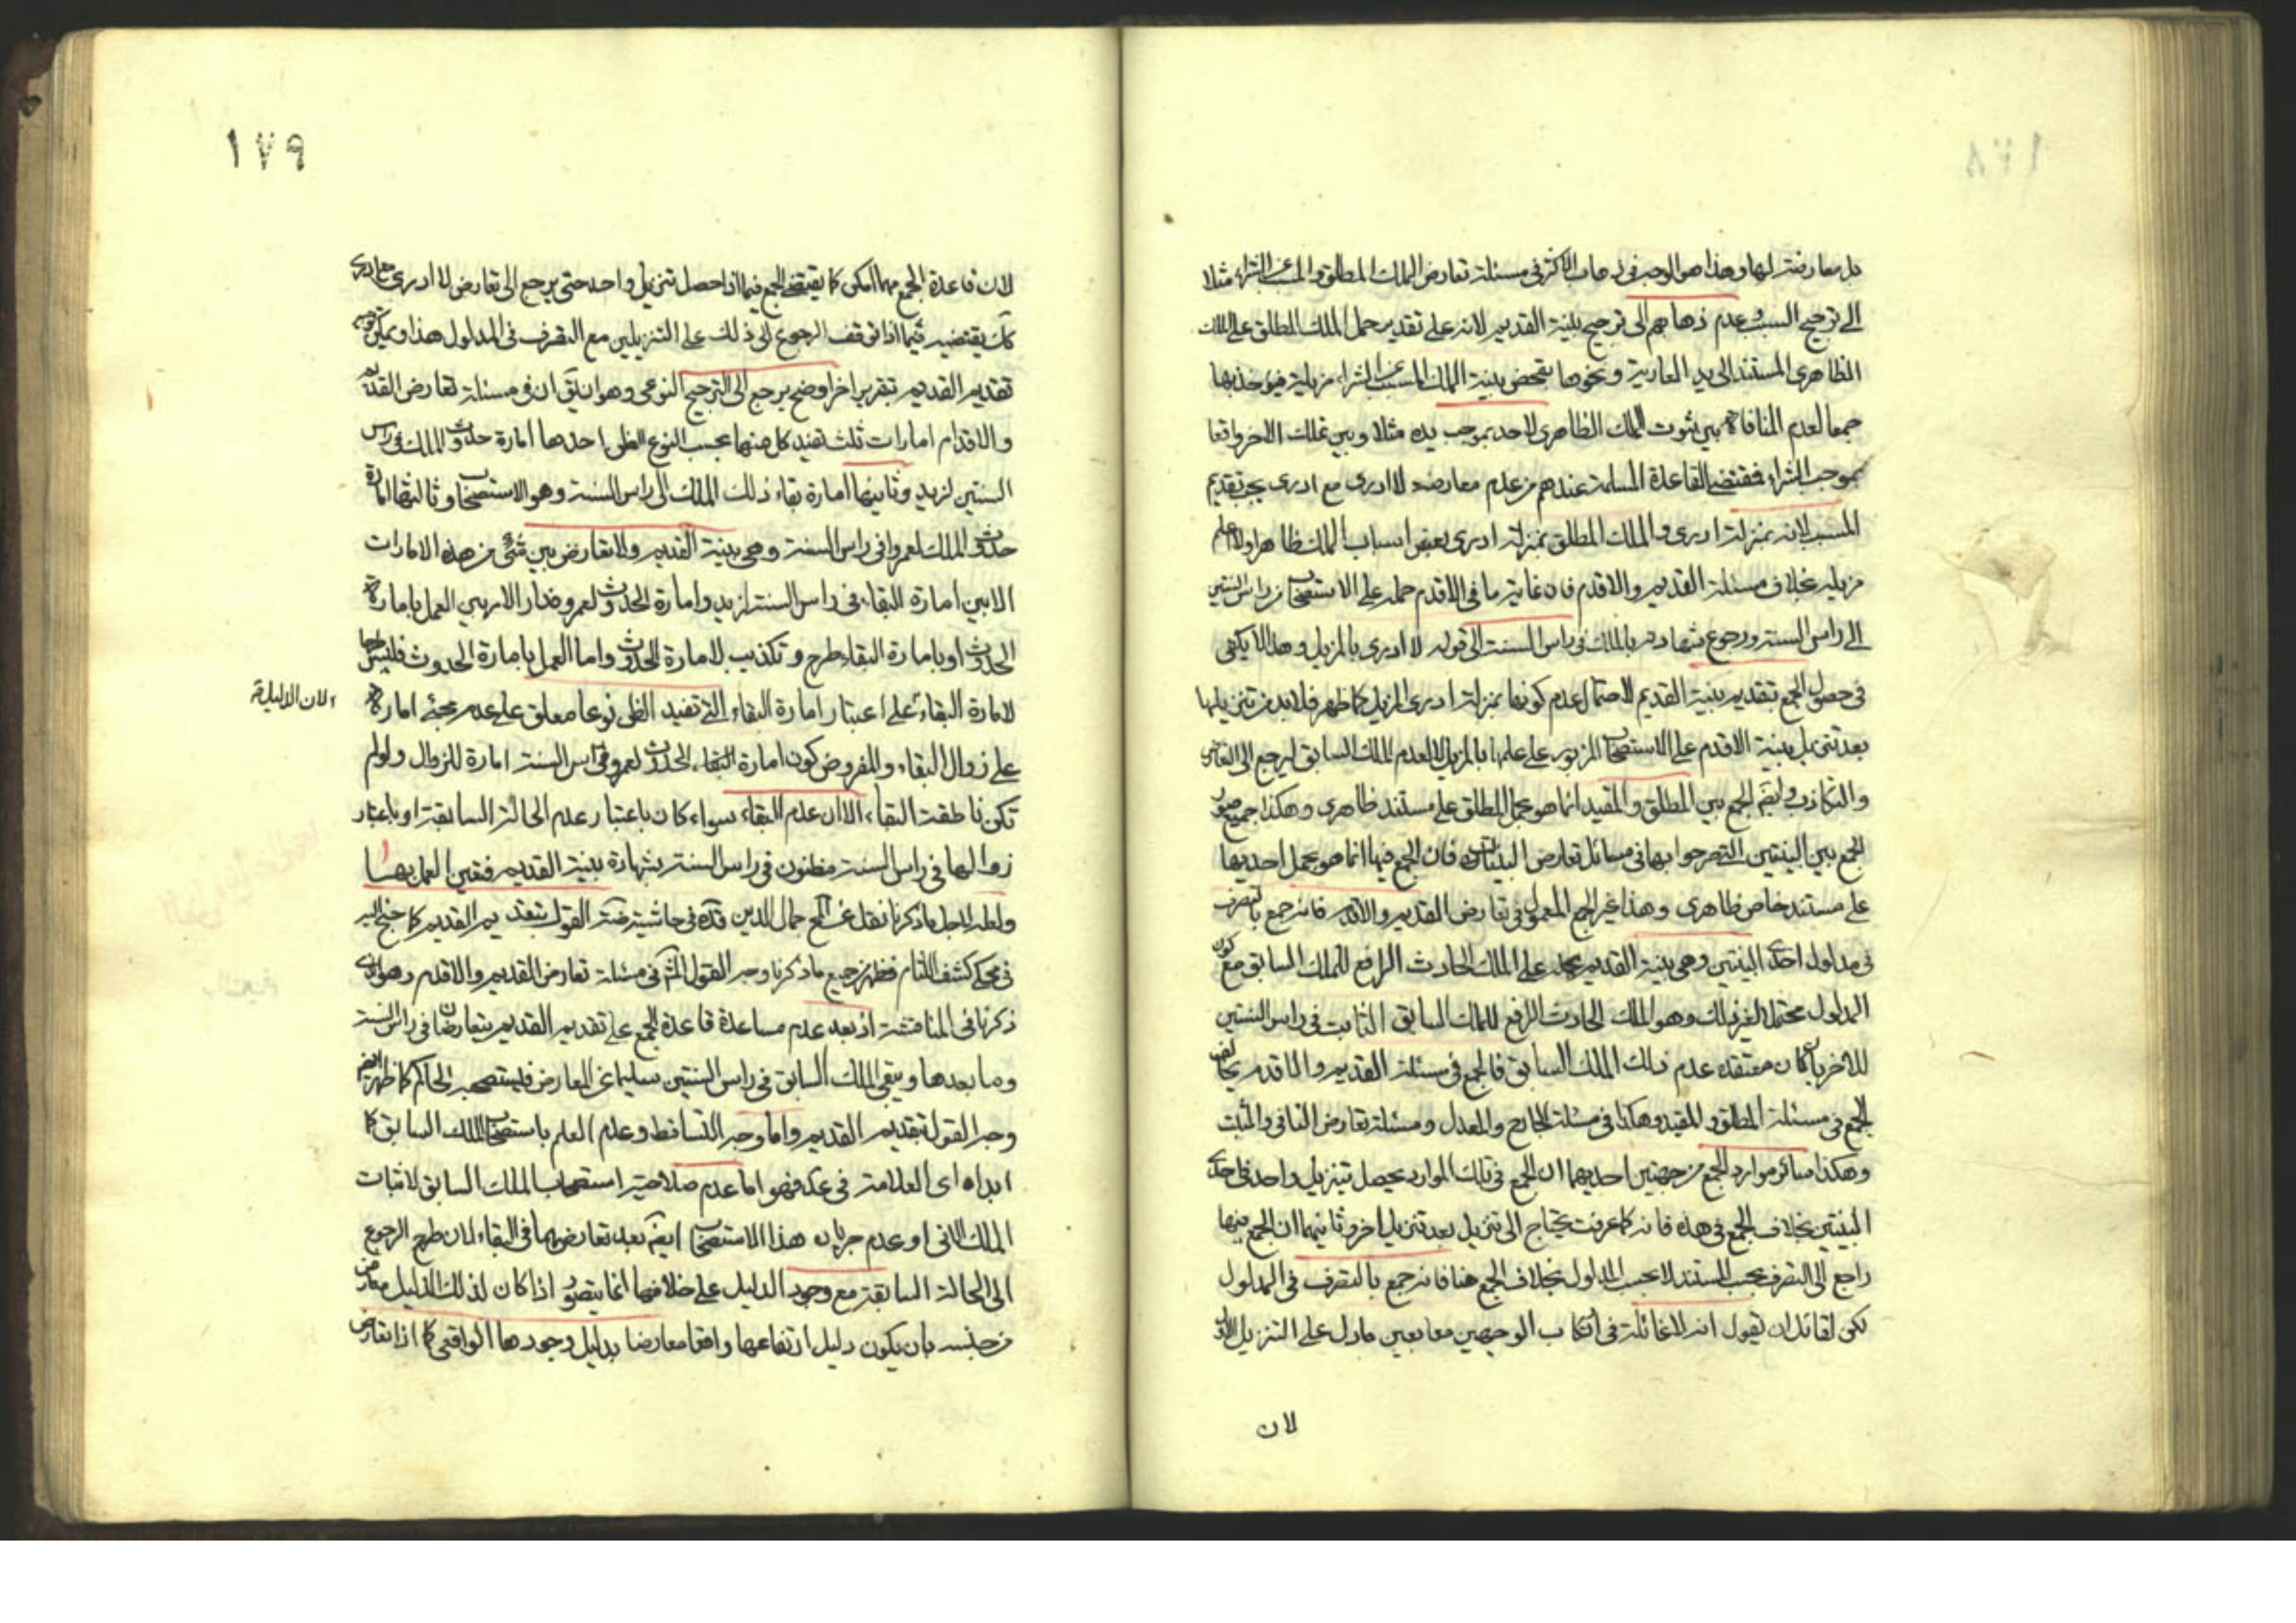 بل معارضته لها وهذا هو الوجه في ذهاب الاكثر في مسئلة تعارض الملك المطلق والمسبب عن الشراء مثلا
الى ترجيح السبب وعدم ذهابهم الى ترجيح بينة القديم لانه على تقدير حمل الملك المطلق على الملك
الظاهرى المستند الى يد العارية ونحوها يتمحض بينة الملك المسبب عن الشراء مزيلة فيؤخذ بها
جمعا لعدم المنافاة بين ثبوت الملك الظاهرى لاحد بموجب يده مثلا وبين تملك الاخر واقعا
بموجب الشراء فمقتضى القاعدة المسلمة عندهم من عدم معارضة لا ادرى مع ادرى يجب تقديم
المسبب لانه بمنزلة ادرى والملك المطلق بمنزلة ادرى بعض اسباب الملك ظاهرا ولا اعلم
مزيله بخلاف مسئلة القديم والاقدم فان غاية ما في الاقدم حمله على الاستصحاب من راس السنتين
الى راس السنة ورجوع شهادته بالملك في راس السنة الى قوله لا ادرى بالمزيل وهذا لا يكفى
في حصول الجمع بتقديم بينة القديم لاحتمال عدم كونها بمنزلة ادرى المزيل كما ظهر فلا بد من تنزيلها
بعد تنزيل بينة الاقدم على الاستصحاب المزبور على علمها بالمزيل لا لعدم الملك السابق ليرجع الى التعارض
والتكاذب وايضا الجمع بين المطلق والمقيد انما هو بحمل المطلق على مستند ظاهرى وهكذا جميع صور
الجمع بين البينتين التى صرحوا بها في مسائل تعارض البينات فان الجمع فيها انما هو بحمل احديهما
على مستند خاص ظاهرى وهذا غير الجمع المعمول في تعارض القديم والاقدم فانه جمع بالتصرف
في مدلول احدى البينتين وهى بينة القديم بحمله على الملك الحادث الرافع للملك السابق مع كون
المدلول محتملا لغير ذلك وهو الملك الحادث الرافع للملك السابق الثابت في راس السنتين
للاخر بان كان معتقده عدم ذلك الملك السابق فالجمع في مسئلة القديم والاقدم يخالف
الجمع في مسئلة المطلق والمقيد وهكذا في مسئلة الجارح والمعدل ومسئلة تعارض النافى والمثبت
وهكذا سائر موارد الجمع من جهتين احديهما ان الجمع في تلك الموارد يحصل بتنزيل واحد في احدى
البينتين بخلاف الجمع في هذه فانه كما عرفت يحتاج الى تنزيل بعد تنزيل اخر وثانيهما ان الجمع فيها
راجع الى التصرف بحسب المستند لا بحسب المدلول بخلاف الجمع هنا فانه جمع بالتصرف في المدلول
لكن لقائل ان يقول انه لا غائلة في ارتكاب الوجهين معا بعين ما دل على التنزيل الاول
لان
١٧٩
لان قاعدة الجمع مهما امكن كما يقتضى الجمع فيما اذا حصل تنزيل واحد حتى يرجع الى تعارض لا ادرى مع ادرى
كك يقتضيه فيما اذا توقف الرجوع الى ذلك على التنزيلين مع التصرف في المدلول هذا ويمكن توجيه
تقديم القديم بتقرير اخر اوضح يرجع الى الترجيح النوعى وهو ان يق ان في مسئلة تعارض القديم
والاقدم امارات ثلث تفيد كل منهما بحسب النوع الظن احدها امارة حدوث الملك في راس
السنتين لزيد وثانيها امارة بقاء ذلك الملك الى راس السنة وهو الاستصحاب وثالثها امارة
حدوث الملك لعمرو في راس السنة وهى بينة القديم ولا تعارض بين شئ من هذه الامارات
الا بين امارة البقاء في راس السنة لزيد وامارة الحدوث لعمرو فدار الامر بين العمل بامارة
الحدوث او بامارة البقاء طرح وتكذيب لامارة الحدوث واما العمل بامارة الحدوث فليس طرحا
لامارة البقاء على اعتبار امارة البقاء التى تفيد الظن نوعا معلق على عدم مجئ امارة
لان الامارة
على زوال البقاء والمفروض كون امارة البقاء الحدوث لعمرو في راس السنة امارة للزوال ولو لم
تكن ناطقة البقاء الا ان عدم البقاء سواء كان باعتبار عدم الحالة السابقة او باعتبار
زوالها في راس السنة مظنون في راس السنة بشهادة بينة القديم فتعين العمل بها
ولعله لاجل ما ذكرنا نقل عن المح جمال الدين قده في حاشيته ضة القول بتقديم القديم كما جنح اليه
في محكى كشف اللثام فظهر من جميع ما ذكرنا وجه القول الثانى في مسئلة تعارض القديم والاقدم وهو الذى
ذكرنا في المناقشة اذ بعد عدم مساعدة قاعدة الجمع على تقديم القديم يتعارضان في راس السنة
وما بعدها ويبقى الملك السابق في راس السنتين سليما عن المعارض فيستصحبه الحاكم كما ظهر ايضا
وجه القول بتقديم القديم واما وجه التساقط وعدم العلم باستصحاب الملك السابق كما
ابداه اى العلامة في عد فهو اما عدم صلاحية استصحاب الملك السابق لاثبات
الملك الانى او عدم جريان هذا الاستصحاب ايضا بعد تعارضهما في البقاء لان طرح الرجوع
الى الحالة السابقة مع وجود الدليل على خلافها انما يتصور اذا كان لذلك الدليل معارض
من جنسه بان يكون دليل ارتفاعها واقعا معارضا بدليل وجودها الواقعى كما اذا تعارض